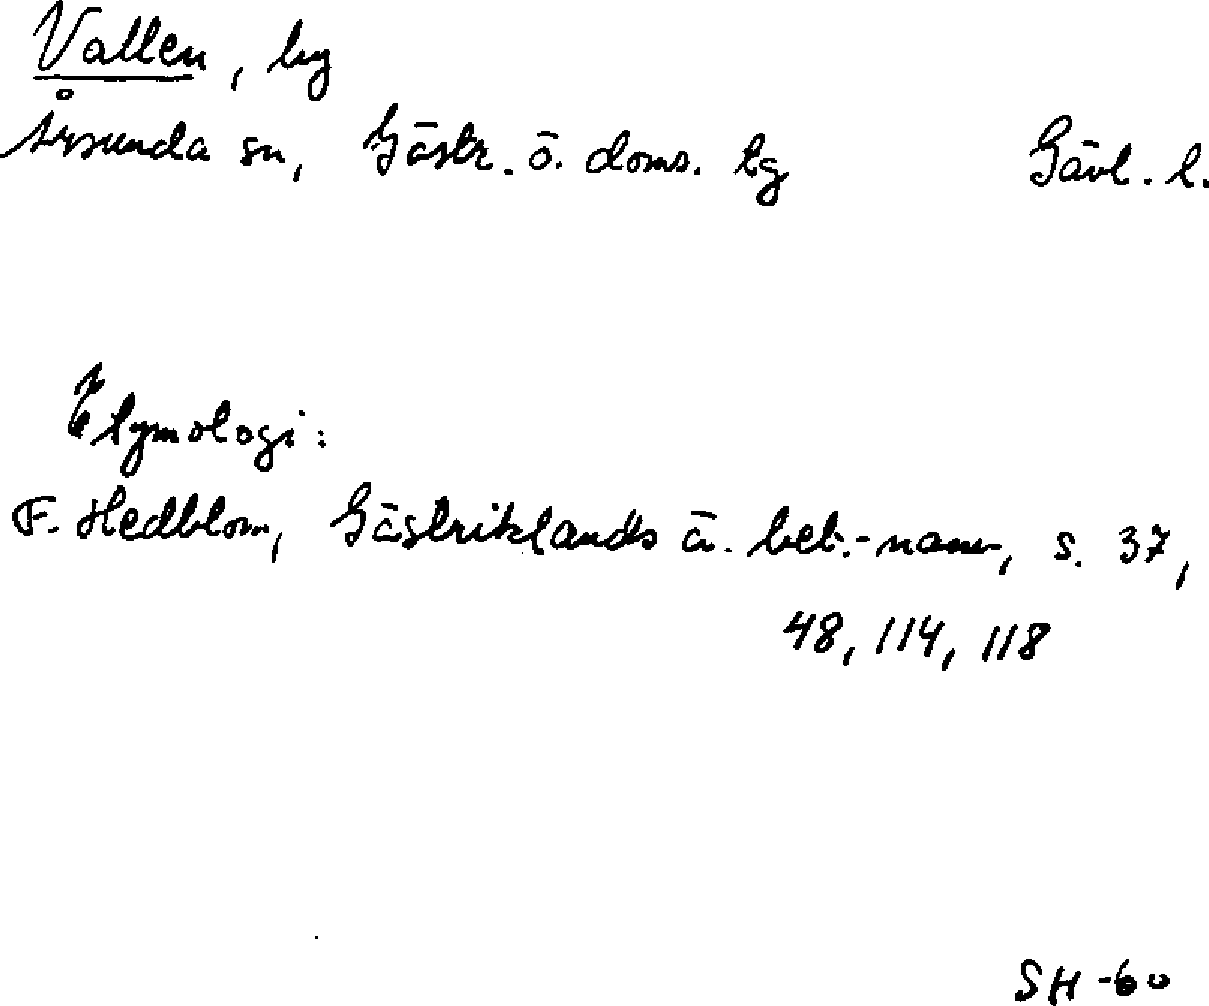 Vallen, by
Årsunda sn, Gästr. ö. doms. tg Gävl. l.
Etymologi:
F. Hedblom, Gästriklands ä. beb.-namn, s. 37,
48, 114, 118
SH -60